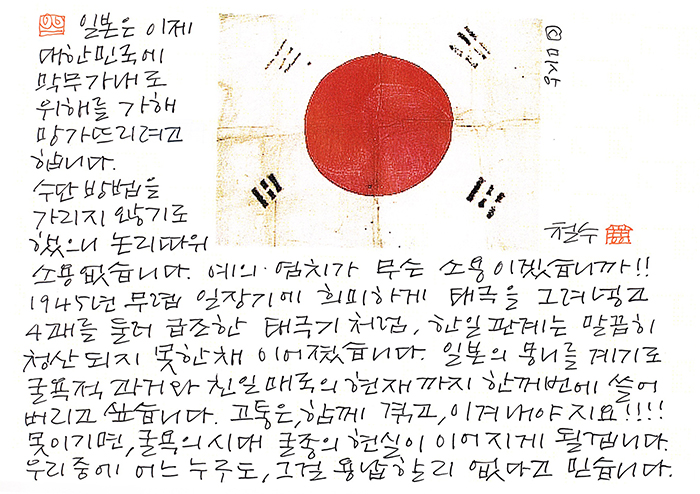 일본은 이제
대한민국에
막무가내로
위해를 가해
망가뜨리려고
합니다.
수단 방법을
가리지 않기로
했으니 논리따위
소용없습니다. 예의·염치가 무슨 소용이겠습니까!!
1945년 무렵 일장기에 희미하게 태극을 그려넣고
4괘를 둘러 급조한 태극기처럼, 한일관계는 말끔히
청산되지 못한채 이어졌습니다. 일본의 몽니를 계기로
굴욕적 과거와 친일매국의 현재까지 한꺼번에 쓸어
버리고 싶습니다. 고통은, 함께 겪고, 이겨내야지요!!!!
못이기면, 굴욕의 시대 굴종의 현실이 이어지게 될겁니다.
우리중에 어느 누구도, 그걸 용납할리 없다고 믿습니다.
©미상
철수